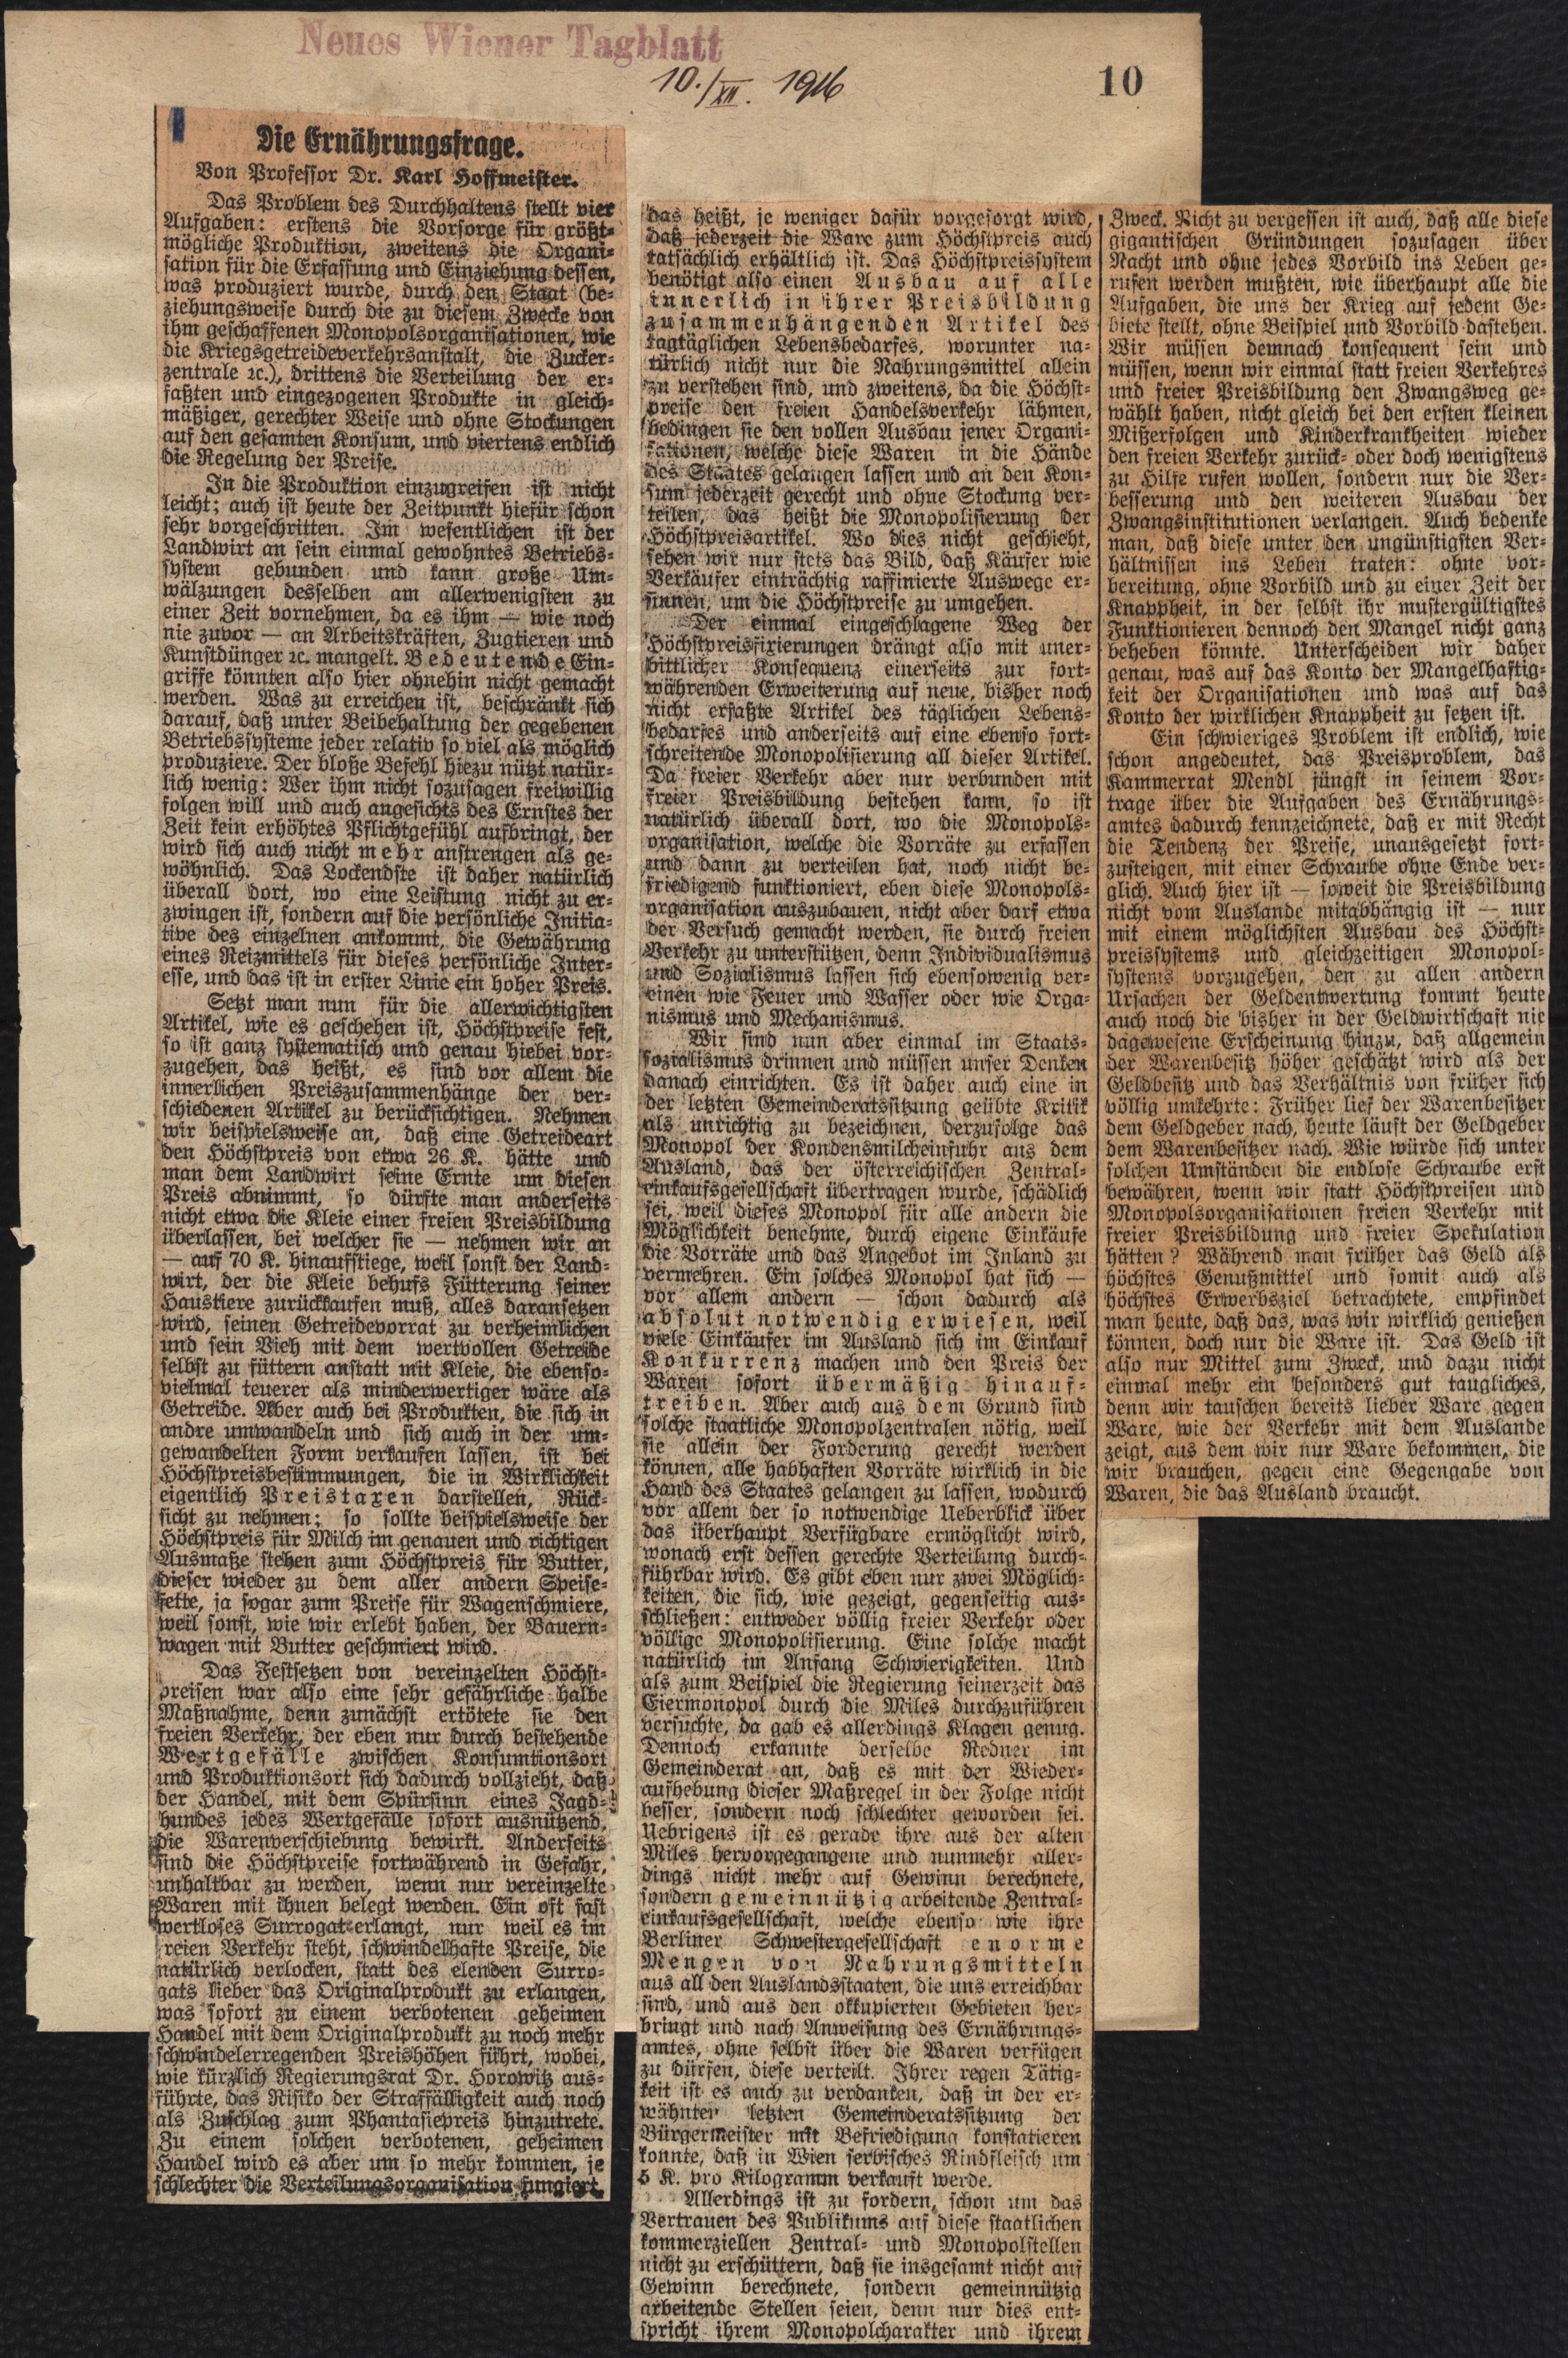 Neues Wiener Tagblatt
10./XII. 1916
10
Die Ernährungsfrage.
Von Professor Dr. Karl Hoffmeister.
Das Problem des Durchhaltens stellt vier
Aufgaben: erstens die Vorsorge für größt-
mögliche Produktion, zweitens die Organi-
sation für die Erfassung und Einziehung dessen,
was produziert wurde, durch den Staat (be-
ziehungsweise durch die zu diesem Zwecke von
ihm geschaffenen Monopolsorganisationen, wie
die Kriegsgetreideverkehrsanstalt, die Zucker-
zentrale ꝛc.), drittens die Verteilung der er-
faßten und eingezogenen Produkte in gleich-
mäßiger, gerechter Weise und ohne Stockungen
auf den gesamten Konsum, und viertens endlich
die Regelung der Preise.
In die Produktion einzugreifen ist nicht
leicht; auch ist heute der Zeitpunkt hiefür schon
sehr vorgeschritten. Im wesentlichen ist der
Landwirt an sein einmal gewohntes Betriebs-
system gebunden und kann große Um-
wälzungen desselben am allerwenigsten zu
einer Zeit vornehmen, da es ihm — wie noch
nie zuvor — an Arbeitskräften, Zugtieren und
Kunstdünger ꝛc. mangelt. Bedeutende Ein-
griffe könnten also hier ohnehin nicht gemacht
werden. Was zu erreichen ist, beschränkt sich
darauf, daß unter Beibehaltung der gegebenen
Betriebssysteme jeder relativ so viel als möglich
produziere. Der bloße Befehl hiezu nützt natür-
lich wenig: Wer ihm nicht sozusagen freiwillig
folgen will und auch angesichts des Ernstes der
Zeit kein erhöhtes Pflichtgefühl aufbringt, der
wird sich auch nicht mehr anstrengen als ge-
wöhnlich. Das Lockendste ist daher natürlich
überall dort, wo eine Leistung nicht zu er-
zwingen ist, sondern auf die persönliche Initia-
tive des einzelnen ankommt, die Gewährung
eines Reizmittels für dieses persönliche Inter-
esse, und das ist in erster Linie ein hoher Preis.
Setzt man nun für die allerwichtigsten
Artikel, wie es geschehen ist, Höchstpreise fest,
so ist ganz systematisch und genau hiebei vor-
zugehen, das heißt, es sind vor allem die
innerlichen Preiszusammenhänge der ver-
schiedenen Artikel zu berücksichtigen. Nehmen
wir beispielsweise an, daß eine Getreideart
den Höchstpreis von etwa 26 K. hätte und
man dem Landwirt seine Ernte um diesen
Preis abnimmt, so dürfte man anderseits
nicht etwa die Kleie einer freien Preisbildung
überlassen, bei welcher sie — nehmen wir an
— auf 70 K. hinaufstiege, weil sonst der Land-
wirt, der die Kleie behufs Fütterung seiner
Haustiere zurückkaufen muß, alles daransetzen
wird, seinen Getreidevorrat zu verheimlichen
und sein Vieh mit dem wertvollen Getreide
selbst zu füttern anstatt mit Kleie, die ebenso-
vielmal teuerer als minderwertiger wäre als
Getreide. Aber auch bei Produkten, die sich in
andre umwandeln und sich auch in der um-
gewandelten Form verkaufen lassen, ist bei
Höchstpreisbestimmungen, die in Wirklichkeit
eigentlich Preistaxen darstellen, Rück-
sicht zu nehmen; so sollte beispielsweise der
Höchstpreis für Milch im genauen und richtigen
Ausmaße stehen zum Höchstpreis für Butter,
dieser wieder zu dem aller andern Speise-
fette, ja sogar zum Preise für Wagenschmiere,
weil sonst, wie wir erlebt haben, der Bauern-
wagen mit Butter geschmiert wird.
Das Festsetzen von vereinzelten Höchst-
preisen war also eine sehr gefährliche halbe
Maßnahme, denn zunächst ertötete sie den
freien Verkehr, der eben nur durch bestehende
Wertgefälle zwischen Konsumtionsort
und Produktionsort sich dadurch vollzieht, daß
der Handel, mit dem Spürsinn eines Jagd-
hundes jedes Wertgefälle sofort ausnützend,
die Warenverschiebung bewirkt. Anderseits
sind die Höchstpreise fortwährend in Gefahr,
unhaltbar zu werden, wenn nur vereinzelte
Waren mit ihnen belegt werden. Ein oft fast
wertloses Surrogat erlangt, nur weil es im
freien Verkehr steht, schwindelhafte Preise, die
natürlich verlocken, statt des elenden Surro-
gats lieber das Originalprodukt zu erlangen,
was sofort zu einem verbotenen geheimen
Handel mit dem Originalprodukt zu noch mehr
schwindelerregenden Preishöhen führt, wobei,
wie kürzlich Regierungsrat Dr. Horowitz aus-
führte, das Risiko der Straffälligkeit auch noch
als Zuschlag zum Phantasiepreis hinzutrete.
Zu einem solchen verbotenen, geheimen
Handel wird es aber um so mehr kommen, je
schlechter die Verteilungsorganisation fungiert,
das heißt, je weniger dafür vorgesorgt wird,
daß jederzeit die Ware zum Höchstpreis auch
tatsächlich erhältlich ist. Das Höchstpreissystem
benötigt also einen Ausbau auf alle
innerlich in ihrer Preisbildung
zusammenhängenden Artikel des
tagtäglichen Lebensbedarfes, worunter na-
türlich nicht nur die Nahrungsmittel allein
zu verstehen sind, und zweitens, da die Höchst-
preise den freien Handelsverkehr lähmen,
bedingen sie den vollen Ausbau jener Organi-
sationen, welche diese Waren in die Hände
des Staates gelangen lassen und an den Kon-
sum jederzeit gerecht und ohne Stockung ver-
teilen, das heißt die Monopolisierung der
Höchstpreisartikel. Wo dies nicht geschieht,
sehen wir nur stets das Bild, daß Käufer wie
Verkäufer einträchtig raffinierte Auswege er-
sinnen, um die Höchstpreise zu umgehen.
Der einmal eingeschlagene Weg der
Höchstpreisfixierungen drängt also mit uner-
bittlicher Konsequenz einerseits zur fort-
währenden Erweiterung auf neue, bisher noch
nicht erfaßte Artikel des täglichen Lebens-
bedarfes und anderseits auf eine ebenso fort-
schreitende Monopolisierung all dieser Artikel.
Da freier Verkehr aber nur verbunden mit
freier Preisbildung bestehen kann, so ist
natürlich überall dort, wo die Monopols-
organisation, welche die Vorräte zu erfassen
und dann zu verteilen hat, noch nicht be-
friedigend funktioniert, eben diese Monopols-
organisation auszubauen, nicht aber darf etwa
der Versuch gemacht werden, sie durch freien
Verkehr zu unterstützen, denn Individualismus
und Sozialismus lassen sich ebensowenig ver-
einen wie Feuer und Wasser oder wie Orga-
nismus und Mechanismus.
Wir sind nun aber einmal im Staats-
sozialismus drinnen und müssen unser Denken
danach einrichten. Es ist daher auch eine in
der letzten Gemeinderatssitzung geübte Kritik
als unrichtig zu bezeichnen, derzufolge das
Monopol der Kondensmilcheinfuhr aus dem
Ausland, das der österreichischen Zentral-
einkaufsgesellschaft übertragen wurde, schädlich
sei, weil dieses Monopol für alle andern die
Möglichkeit benehme, durch eigene Einkäufe
die Vorräte und das Angebot im Inland zu
vermehren. Ein solches Monopol hat sich —
vor allem andern — schon dadurch als
absolut notwendig erwiesen, weil
viele Einkäufer im Ausland sich im Einkauf
Konkurrenz machen und den Preis der
Waren sofort übermäßig hinauf-
treiben. Aber auch aus dem Grund sind
solche staatliche Monopolzentralen nötig, weil
sie allein der Forderung gerecht werden
können, alle habhaften Vorräte wirklich in die
Hand des Staates gelangen zu lassen, wodurch
vor allem der so notwendige Ueberblick über
das überhaupt Verfügbare ermöglicht wird,
wonach erst dessen gerechte Verteilung durch-
führbar wird. Es gibt eben nur zwei Möglich-
keiten, die sich, wie gezeigt, gegenseitig aus-
schließen: entweder völlig freier Verkehr oder
völlige Monopolisierung. Eine solche macht
natürlich im Anfang Schwierigkeiten. Und
als zum Beispiel die Regierung seinerzeit das
Eiermonopol durch die Miles durchzuführen
versuchte, da gab es allerdings Klagen genug.
Dennoch erkannte derselbe Redner im
Gemeinderat an, daß es mit der Wieder-
aufhebung dieser Maßregel in der Folge nicht
besser, sondern noch schlechter geworden sei.
Uebrigens ist es gerade ihre aus der alten
Miles hervorgegangene und nunmehr aller-
dings nicht mehr auf Gewinn berechnete,
sondern gemeinnützig arbeitende Zentral-
einkaufsgesellschaft, welche ebenso wie ihre
Berliner Schwestergesellschaft enorme
Mengen von Nahrungsmitteln
aus all den Auslandsstaaten, die uns erreichbar
sind, und aus den okkupierten Gebieten her-
bringt und nach Anweisung des Ernährungs-
amtes, ohne selbst über die Waren verfügen
zu dürfen, diese verteilt. Ihrer regen Tätig-
keit ist es auch zu verdanken, daß in der er-
wähnten letzten Gemeinderatssitzung der
Bürgermeister mit Befriedigung konstatieren
konnte, daß in Wien serbisches Rindfleisch um
5 K. pro Kilogramm verkauft werde.
Allerdings ist zu fordern, schon um das
Vertrauen des Publikums auf diese staatlichen
kommerziellen Zentral- und Monopolstellen
nicht zu erschüttern, daß sie insgesamt nicht auf
Gewinn berechnete, sondern gemeinnützig
arbeitende Stellen seien, denn nur dies ent-
spricht ihrem Monopolcharakter und ihrem
Zweck. Nicht zu vergessen ist auch, daß alle diese
gigantischen Gründungen sozusagen über
Nacht und ohne jedes Vorbild ins Leben ge-
rufen werden mußten, wie überhaupt alle die
Aufgaben, die uns der Krieg auf jedem Ge-
biete stellt, ohne Beispiel und Vorbild dastehen.
Wir müssen demnach konsequent sein und
müssen, wenn wir einmal statt freien Verkehres
und freier Preisbildung den Zwangsweg ge-
wählt haben, nicht gleich bei den ersten kleinen
Mißerfolgen und Kinderkrankheiten wieder
den freien Verkehr zurück- oder doch wenigstens
zu Hilfe rufen wollen, sondern nur die Ver-
besserung und den weiteren Ausbau der
Zwangsinstitutionen verlangen. Auch bedenke
man, daß diese unter den ungünstigsten Ver-
hältnissen ins Leben traten: ohne vor-
bereitung, ohne Vorbild und zu einer Zeit der
Knappheit, in der selbst ihr mustergültigstes
Funktionieren dennoch den Mangel nicht ganz
beheben könnte. Unterscheiden wir daher
genau, was auf das Konto der Mangelhaftig-
keit der Organisationen und was auf das
Konto der wirklichen Knappheit zu setzen ist.
Ein schwieriges Problem ist endlich, wie
schon angedeutet, das Preisproblem, das
Kammerrat Mendl jüngst in seinem Vor-
trage über die Aufgaben des Ernährungs-
amtes dadurch kennzeichnete, daß er mit Recht
die Tendenz der Preise, unausgesetzt fort-
zusteigen, mit einer Schraube ohne Ende ver-
glich. Auch hier ist — soweit die Preisbildung
nicht vom Auslande mitabhängig ist — nur
mit einem möglichsten Ausbau des Höchst-
preissystems und gleichzeitigen Monopol-
systems vorzugehen, den zu allen andern
Ursachen der Geldentwertung kommt heute
auch noch die bisher in der Geldwirtschaft nie
dagewesene Erscheinung hinzu, daß allgemein
der Warenbesitz höher geschätzt wird als der
Geldbesitz und das Verhältnis von früher sich
völlig umkehrte: Früher lief der Warenbesitzer
dem Geldgeber nach, heute läuft der Geldgeber
dem Warenbesitzer nach. Wie würde sich unter
solchen Umständen die endlose Schraube erst
bewähren, wenn wir statt Höchstpreisen und
Monopolsorganisationen freien Verkehr mit
freier Preisbildung und freier Spekulation
hätten? Während man früher das Geld als
höchstes Genußmittel und somit auch als
höchstes Erwerbsziel betrachtete, empfindet
man heute, daß das, was wir wirklich genießen
können, doch nur die Ware ist. Das Geld ist
also nur Mittel zum Zweck, und dazu nicht
einmal mehr ein besonders gut taugliches,
denn wir tauschen bereits lieber Ware gegen
Ware, wie der Verkehr mit dem Auslande
zeigt, aus dem wir nur Ware bekommen, die
wir brauchen, gegen eine Gegengabe von
Waren, die das Ausland braucht.